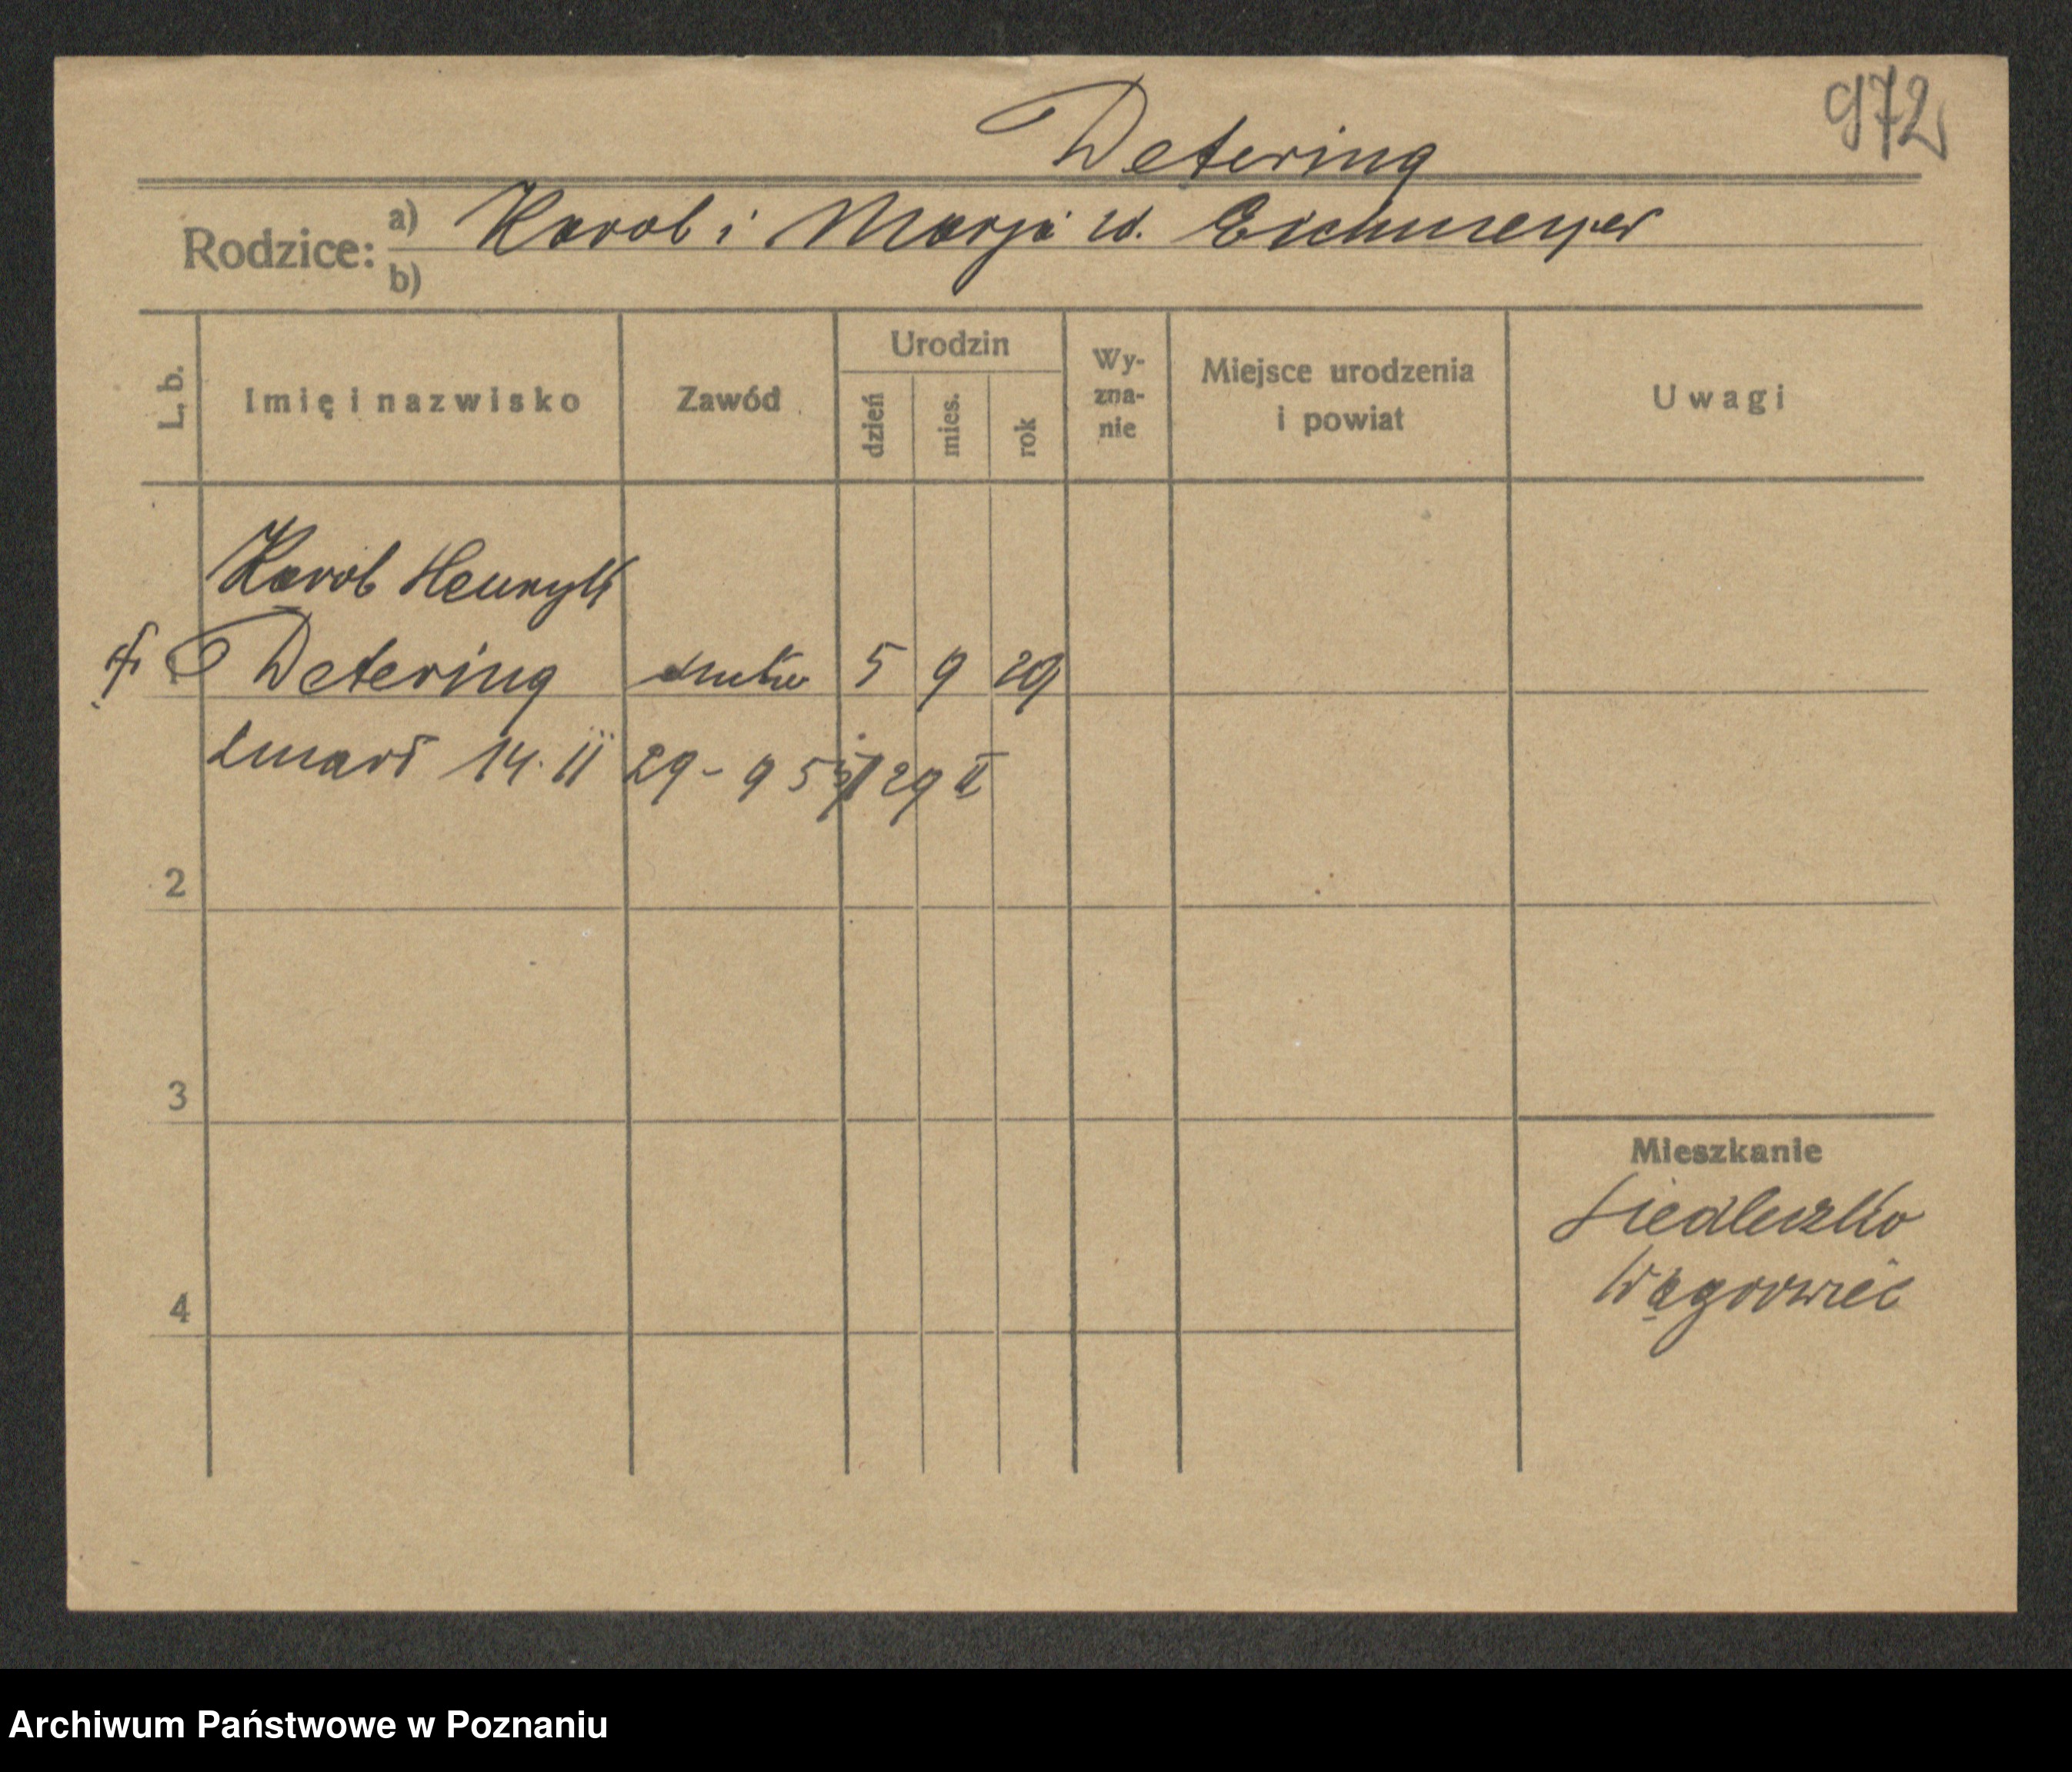 972
Detering
Rodzice: a) Karol i Marja ur. Eichmeyer
b)
L. b. Imię i nazwisko Zawód Urodzin dzień mies. rok Wy-zna-nie Miejsce urodzenia i powiat Uwagi
Karol Henryk
Detering 5 9 29
zmarł 14. 11 29 - 9 5 29 II
2
3
Mieszkanie
Siedleczko
Wągrowiec
4
Archiwum Państwowe w Poznaniu